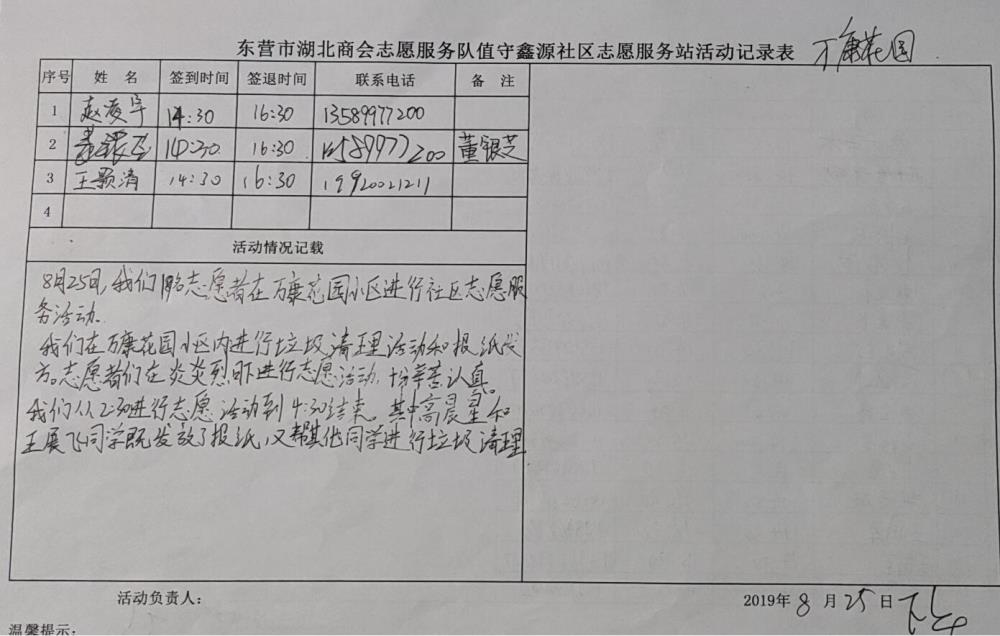 东营市湖北商会志愿服务队值守鑫源社区志愿服务站活动记录表 万康花园
序号 姓 名 签到时间 签退时间 联系电话 备 注
1 赵凌宇 14:30 16:30 13589977200
2 董银芝 14:30 16:30 13589977200 董银芝
3 王颢清 14:30 16:30 19920021211
4
活动情况记载
8月25日,我们 名志愿者在万康花园小区进行社区志愿服
务活动.
我们在万康花园小区内进行垃圾清理活动和报纸发
方。志愿者们在炎炎烈日下进行志愿活动,十份辛苦认真。
我们从2:30进行志愿活动到4:30结束。其中高晨星和
王展飞同学既发放了报纸,又帮其他同学进行垃圾清理
活动负责人:
2019年8月25日 下午
温馨提示: